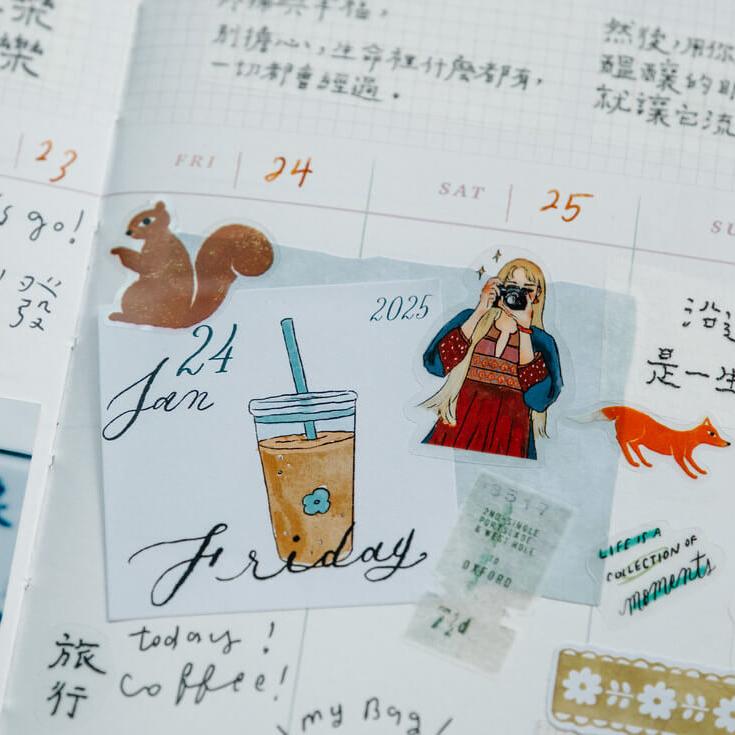 樂
別擔心，生命裡什麼都有，
一切都會經過。
然後，用你
醞釀的
就讓它流
23
FRI 24
SAT 25
SU
s go!
發
2025
24
Jan
Friday
沿
是一生
3517
2ND-SINGLE
PORTSLADE
& WEST HOLE
TO
OXFORD
7½d
LIFE IS A
COLLECTION OF
moments
旅行
today!
coffee!
my Bag